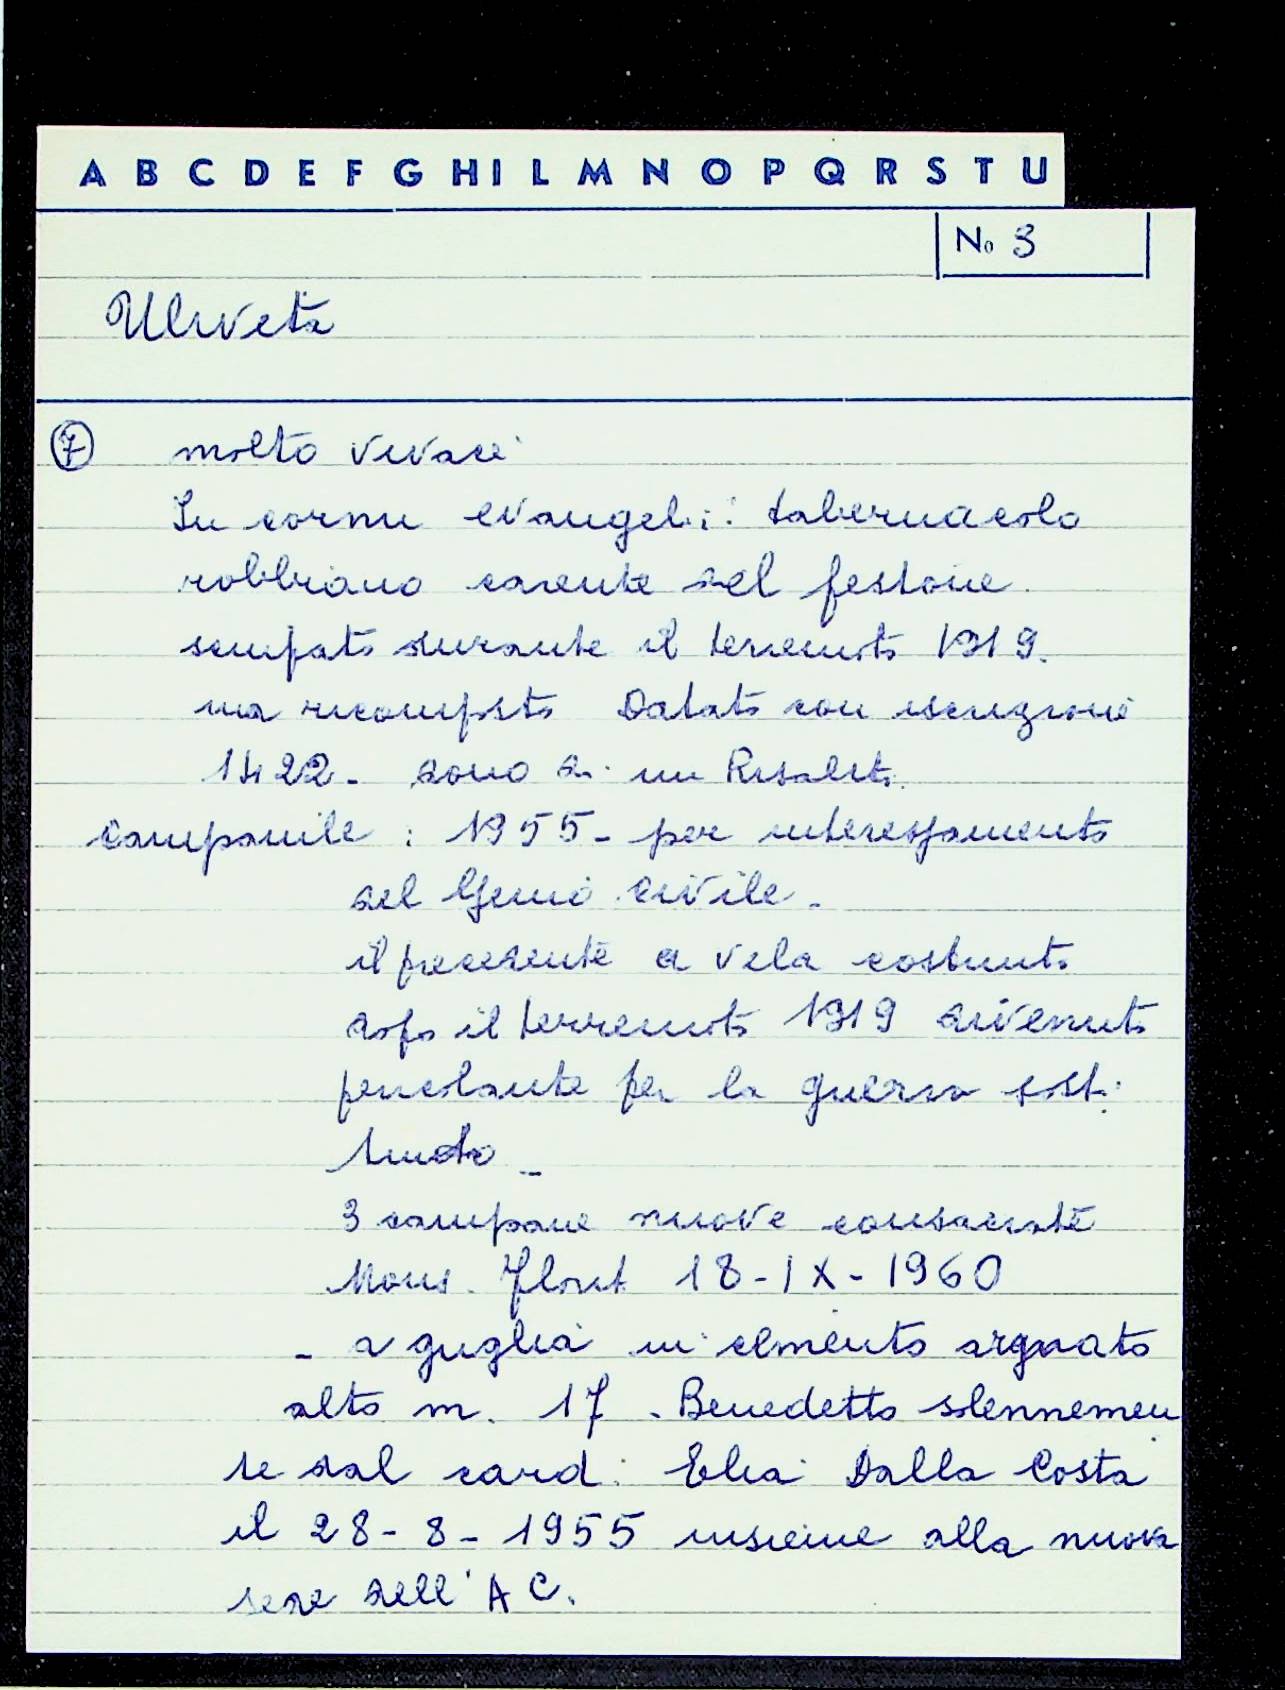 A B C D E F G H I L M N O P Q R S T U
No 3
Uliveta
7 molto vivaci
In cornu evangeli: tabernacolo
robbiano carente del festone
sciupato durante il terremoto 1919.
ma ricomposto Datato con iscrizione
1422 - dono di un Risaliti
campanile : 1955 - per interessamento
del Genio civile -
il precedente a vela costruito
dopo il terremoto 1919 divenuto
pericolante per la guerra sosti
tuito -
3 campane nuove consacrate
Mons. Florit 18-IX-1960
- a guglia in cemento armato
alto m. 17 . Benedetto solennemen
te dal card. Elia Dalla Costa
il 28-8-1955 insieme alla nuova
sede dell'A C.